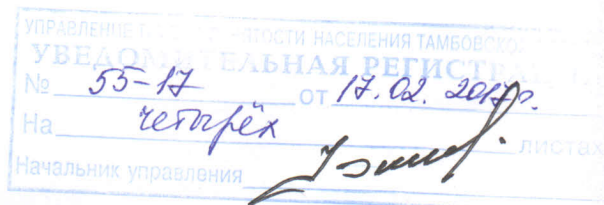 УПРАВЛЕНИЕ НАСЕЛЕНИЯ ТАМБОВСКО
УВЕДОМИТЕЛЬНАЯ РЕГИСТ
№ 55-17 от 17.02.2017г.
На четырёх листах
Начальник управления